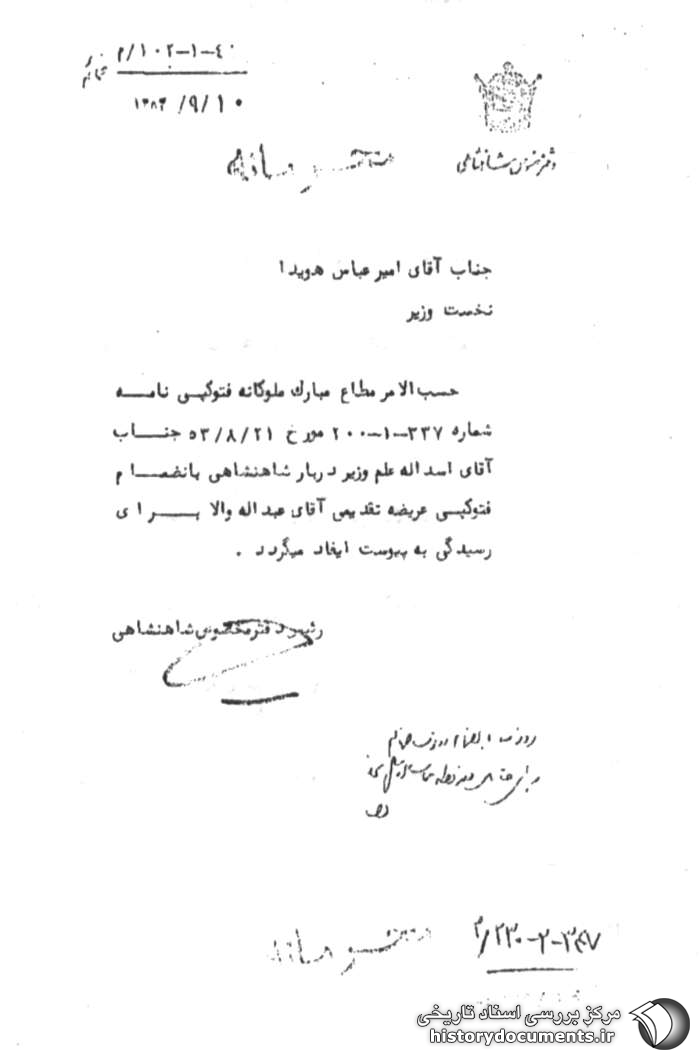 ۴۰-۱-۱۰۲/م
۱۰/۹/
دفتر مخصوص شاهنشاهی
محرمانه
جناب آقای امیر عباس هویدا
نخست وزیر
حسب الامر مطاع مبارک ملوکانه فتوکپی نامه
شماره ۳۳۷-۱-۲۰۰ مورخ ۵۳/۸/۲۱ جناب
آقای اسداله علم وزیر دربار شاهنشاهی بانضمام
فتوکپی عریضه تقدیمی آقای عبداله والا برای
رسیدگی به پیوست ایفاد میگردد .
رئیس دفتر مخصوص شاهنشاهی
محرمانه
مرکز بررسی اسناد تاریخی
historydocuments.ir